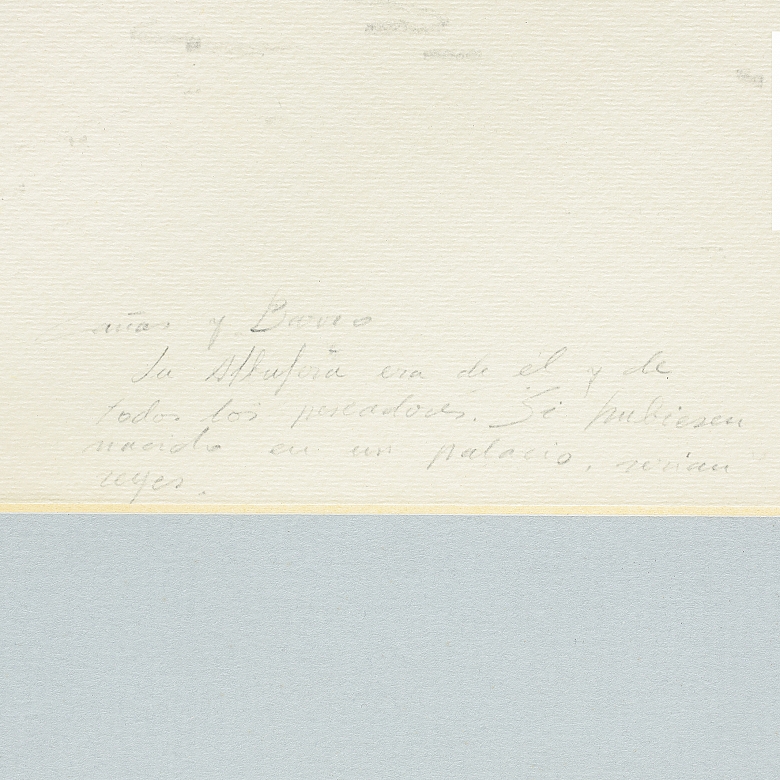 cañas y Barro
La Albufera era de él y de
todos los pescadores. Si hubiesen
nacido en un palacio, serian
reyes.